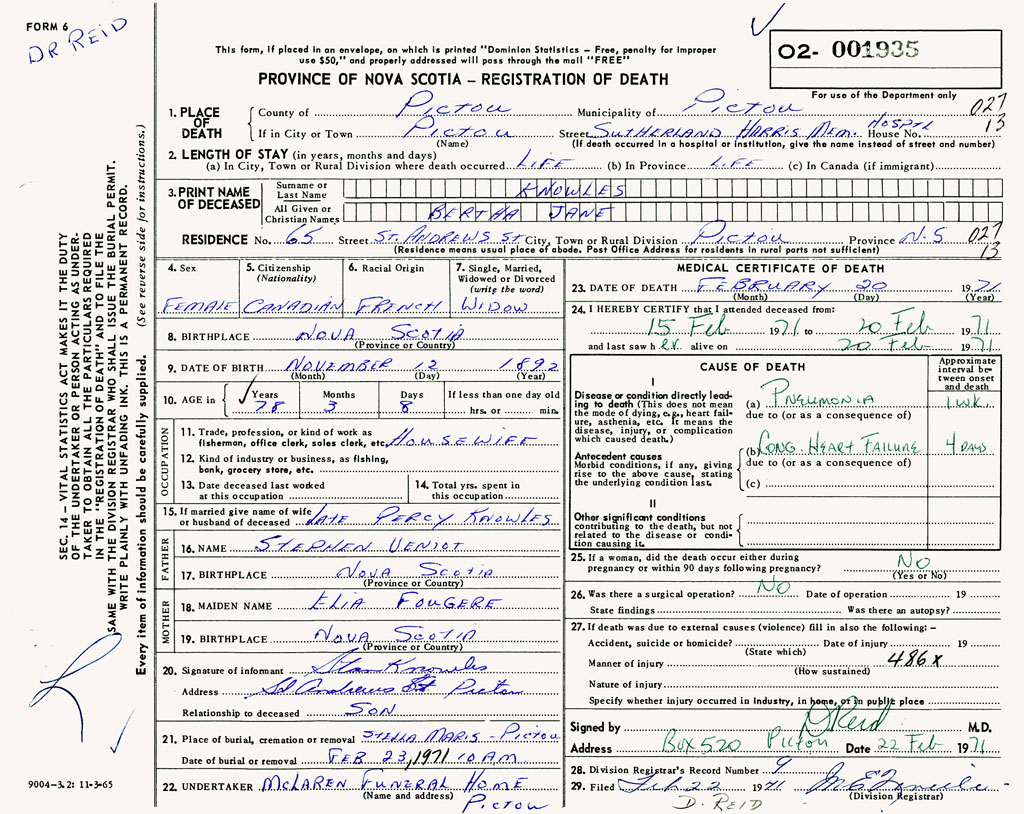 FORM 6
DR REID
This form, if placed in an envelope, on which is printed "Dominion Statistics – Free, penalty for improper
use $50," and properly addressed will pass through the mail "FREE"
PROVINCE OF NOVA SCOTIA – REGISTRATION OF DEATH
O2- 001935
For use of the Department only
SEC. 14 – VITAL STATISTICS ACT MAKES IT THE DUTY
OF THE UNDERTAKER OR PERSON ACTING AS UNDER-
TAKER TO OBTAIN ALL THE PARTICULARS REQUIRED
IN THE "REGISTRATION OF DEATH" AND TO FILE THE
SAME WITH THE DIVISION REGISTRAR WHO SHALL ISSUE THE BURIAL PERMIT.
WRITE PLAINLY WITH UNFADING INK. THIS IS A PERMANENT RECORD.
Every item of information should be carefully supplied. (See reverse side for instructions.)
1. PLACE OF DEATH
County of Pictou Municipality of Pictou 027
If in City or Town Pictou Street SUTHERLAND HARRIS MEM. HOSPTL House No. 13
(Name) (If death occurred in a hospital or institution, give the name instead of street and number)
2. LENGTH OF STAY (in years, months and days)
(a) In City, Town or Rural Division where death occurred LIFE (b) In Province LIFE (c) In Canada (if immigrant)
3. PRINT NAME OF DECEASED
Surname or Last Name KNOWLES
All Given or Christian Names BERTHA JANE
RESIDENCE No. 65 Street ST. ANDREWS ST City, Town or Rural Division Pictou Province N.S 027
(Residence means usual place of abode. Post Office Address for residents in rural parts not sufficient) 13
4. Sex FEMALE
5. Citizenship (Nationality) CANADIAN
6. Racial Origin FRENCH
7. Single, Married, Widowed or Divorced (write the word) WIDOW
8. BIRTHPLACE NOVA SCOTIA
(Province or Country)
9. DATE OF BIRTH NOVEMBER 12 1892
(Month) (Day) (Year)
10. AGE in Years 78 Months 3 Days 8 If less than one day old hrs. or min.
OCCUPATION
11. Trade, profession, or kind of work as
fisherman, office clerk, sales clerk, etc. HOUSEWIFE
12. Kind of industry or business, as fishing,
bank, grocery store, etc.
13. Date deceased last worked
at this occupation
14. Total yrs. spent in
this occupation
15. If married give name of wife
or husband of deceased LATE PERCY KNOWLES
FATHER
16. NAME STEPHEN VENIOT
17. BIRTHPLACE NOVA SCOTIA
(Province or Country)
MOTHER
18. MAIDEN NAME ELIA FOUGERE
19. BIRTHPLACE NOVA SCOTIA
(Province or Country)
20. Signature of informant Stan Knowles
Address St Andrews St Pictou
Relationship to deceased SON
21. Place of burial, cremation or removal STELLA MARIS - Pictou
Date of burial or removal FEB 23, 1971 10 AM
22. UNDERTAKER McLAREN FUNERAL HOME
(Name and address) Pictou
9004–3.2: 11-3-65
MEDICAL CERTIFICATE OF DEATH
23. DATE OF DEATH FEBRUARY 20 1971
(Month) (Day) (Year)
24. I HEREBY CERTIFY that I attended deceased from:
15 Feb 1971 to 20 Feb 1971
and last saw her alive on 20 Feb 1971
CAUSE OF DEATH
Approximate interval between onset and death
I
Disease or condition directly lead-
ing to death (This does not mean
the mode of dying, e.g., heart fail-
ure, asthenia, etc. It means the
disease, injury, or complication
which caused death.)
(a) PNEUMONIA 1 WK.
due to (or as a consequence of)
Antecedent causes
Morbid conditions, if any, giving
rise to the above cause, stating
the underlying condition last.
(b) CONG. HEART FAILURE 4 DAYS
due to (or as a consequence of)
(c)
II
Other significant conditions
contributing to the death, but not
related to the disease or condi-
tion causing it.
25. If a woman, did the death occur either during
pregnancy or within 90 days following pregnancy? No
(Yes or No)
26. Was there a surgical operation? No Date of operation 19
State findings Was there an autopsy?
27. If death was due to external causes (violence) fill in also the following: –
Accident, suicide or homicide? Date of injury 19
(State which)
Manner of injury 486x
(How sustained)
Nature of injury
Specify whether injury occurred in industry, in home, or in public place
Signed by D Reid M.D.
Address Box 520 Pictou Date 22 Feb 1971
28. Division Registrar's Record Number 9
29. Filed Feb 22 1971
(Division Registrar)
D. REID